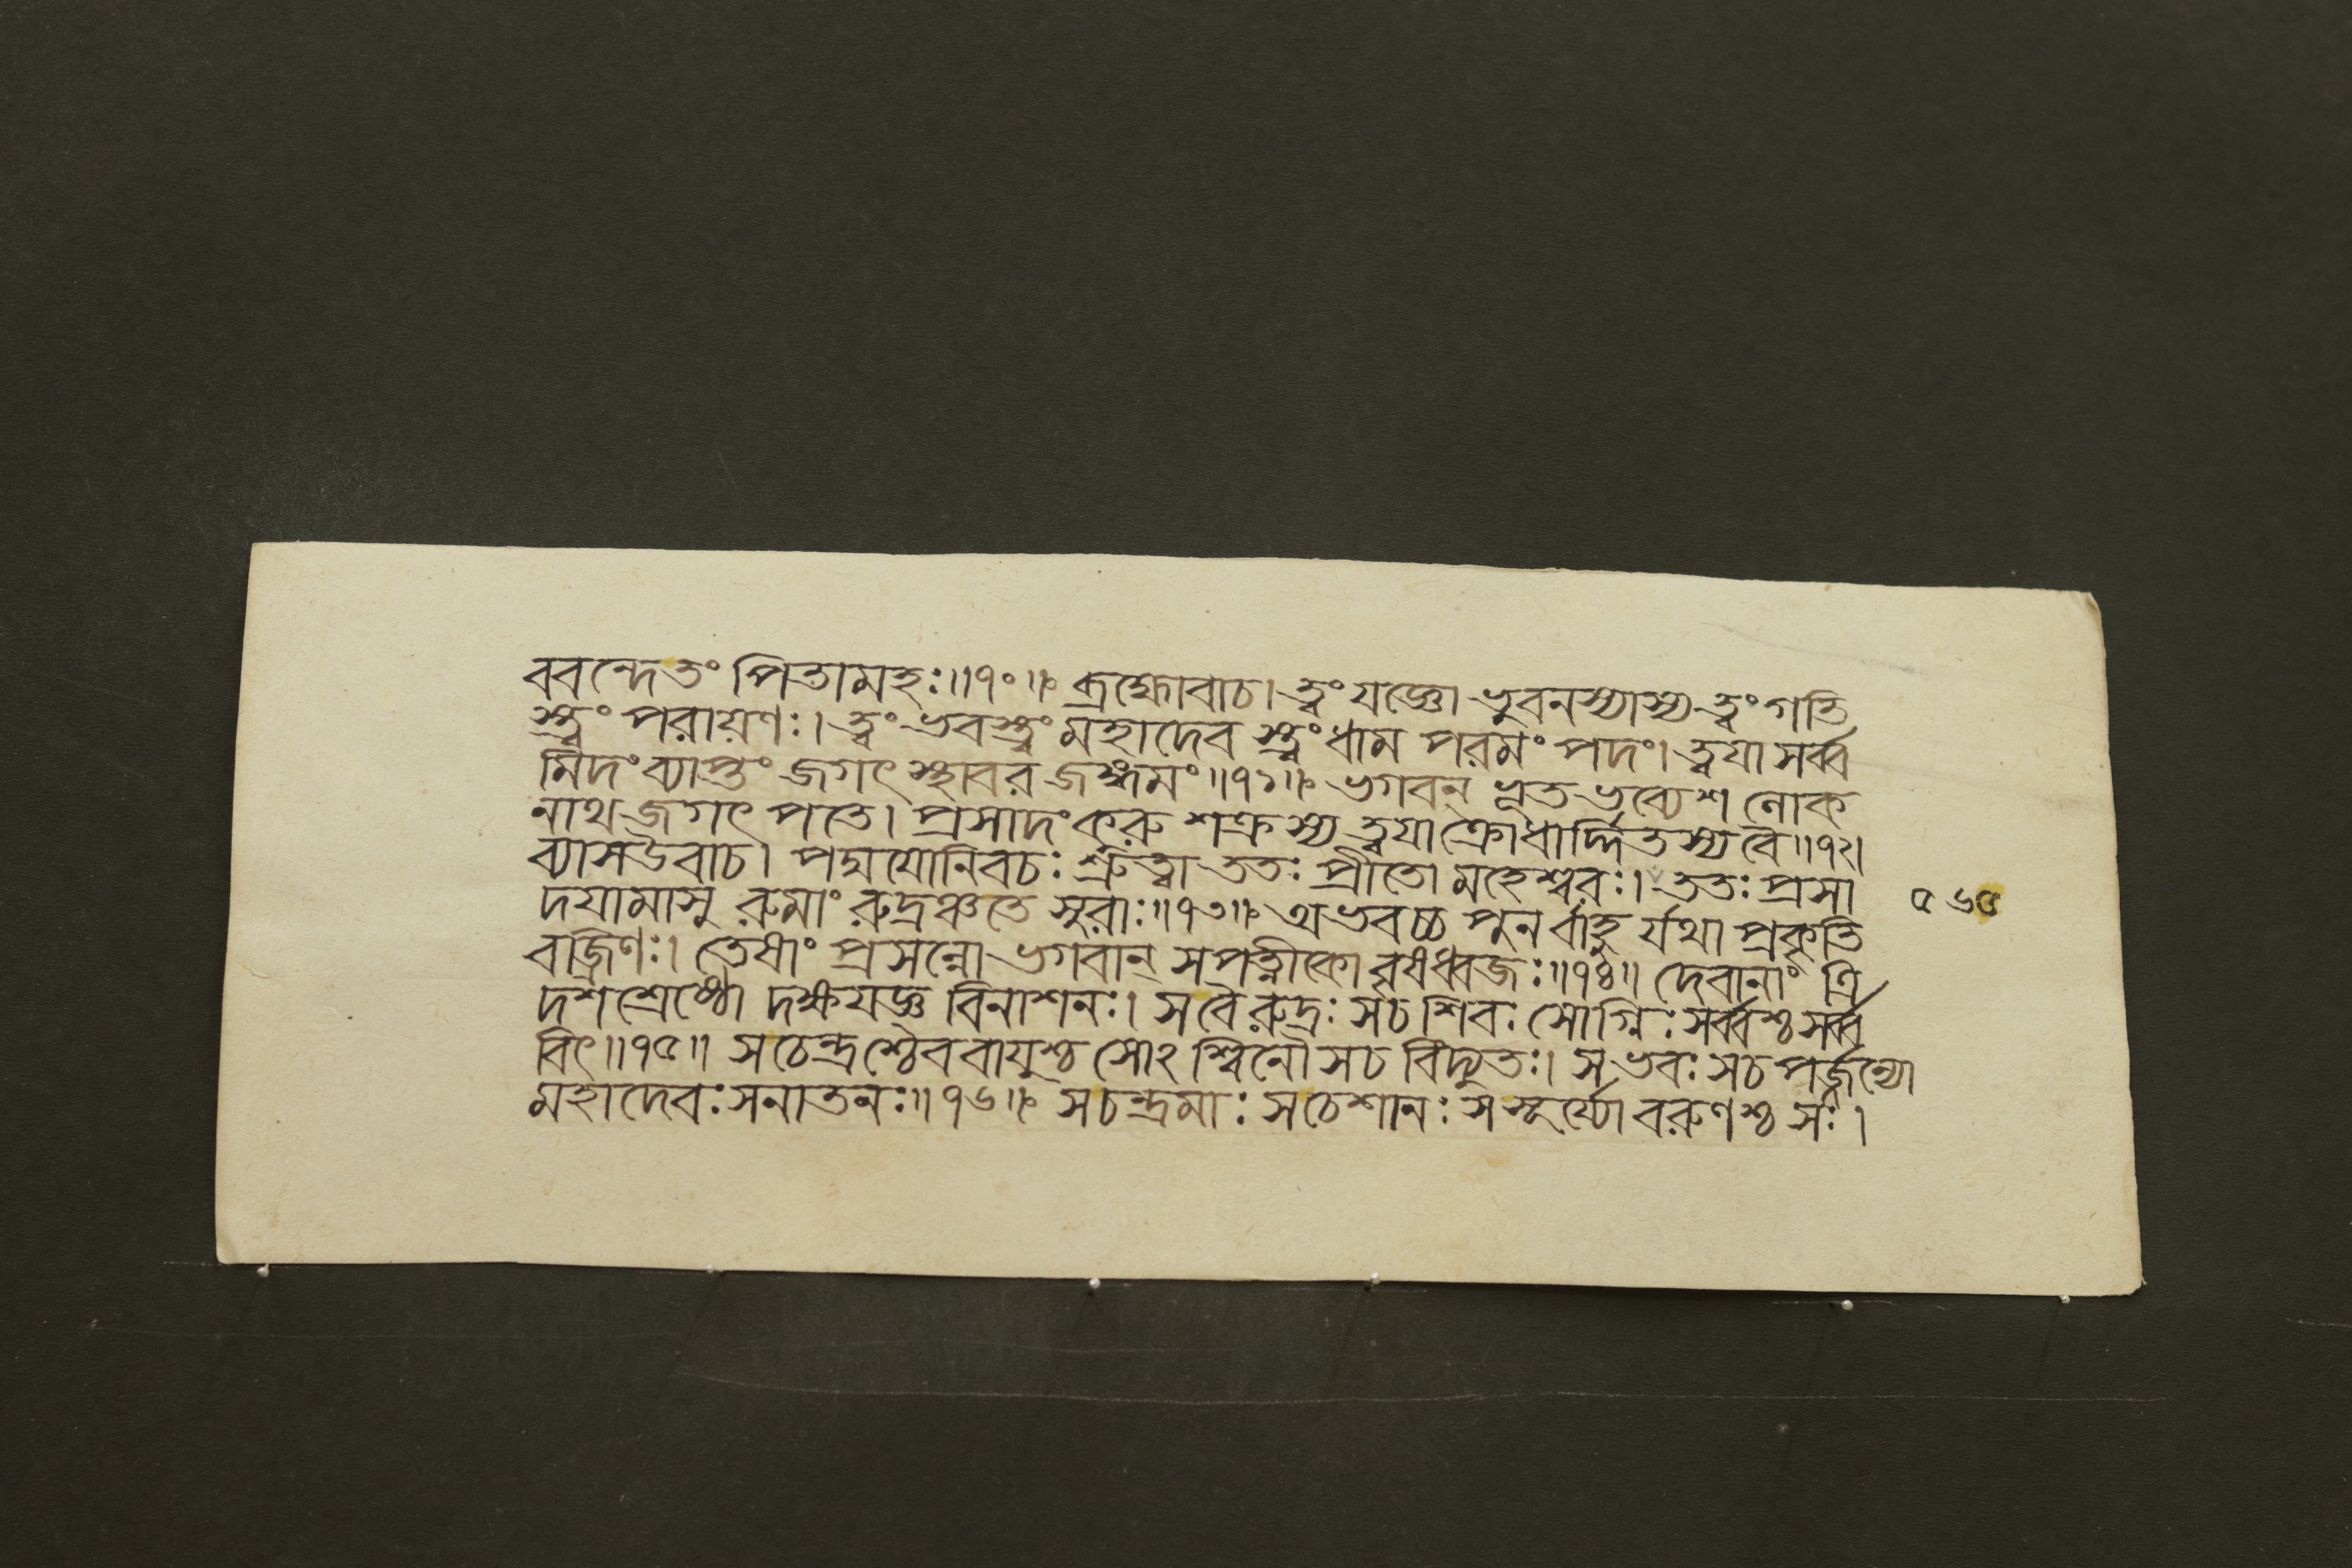 ববন্দেতং পিতামহঃ॥৭০॥ ব্রহ্মোবাচ। ত্বং যজ্ঞো ভুবনস্যাস্য ত্বং গতি
স্ত্বং পরায়ণঃ। ত্বং ভবস্ত্বং মহাদেব স্ত্বং ধাম পরমং পদং। ত্বযা সর্ব্ব
মিদং ব্যাপ্তং জগৎ স্থাবর জঙ্গমং॥৭১॥ ভগবন্ ভূত ভব্যেশ লোক
নাথ জগৎ পতে। প্রসাদং করু শক্রস্য ত্বযা ক্রোধার্দ্দিতস্য বৈ॥৭২।
ব্যাসউবাচ। পদ্মযোনিবচঃ শ্রুত্বা ততঃ প্রীতো মহেশ্বরঃ। ততঃ প্রসা
দযামাসু রুমাং রুদ্রঞ্চতে সুরাঃ॥৭৩॥ অভবচ্চ পুনর্বাহু র্যথা প্রকৃতি
বজ্রিণঃ। তেষাং প্রসন্নো ভগবান্ সপত্নীকো বৃষধ্বজঃ॥৭৪॥ দেবানাং ত্রি
দশশ্রেষ্ঠো দক্ষযজ্ঞ বিনাশনঃ। সবৈরুদ্রঃ সচ শিবঃ সোগ্নিঃ সর্ব্বশ্চ সর্ব্ব
বিৎ॥৭৫॥ সচেন্দ্রশ্চৈব বাযুশ্চ সোঽশ্বিনৌ সচ বিদ্যুতঃ। স ভবঃ সচ পর্জ্জন্যো
মহাদেবঃ সনাতনঃ॥৭৬॥ সচন্দ্রমাঃ সচেশানঃ সসূর্য্যো বরুণশ্চ সঃ।
৫৬৫